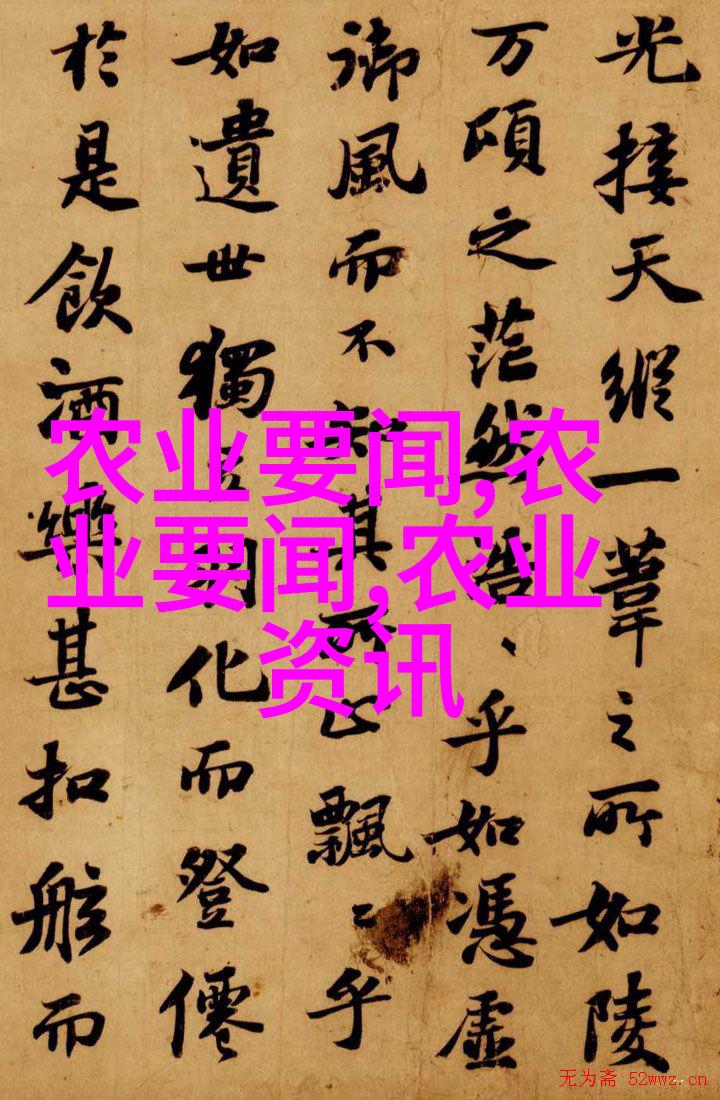 光接天縱一葦之所如陵
万頃之茫然浩、乎如憑虛
御風而不知其所止飄〻乎
如遺世獨立羽化而登僊
於是飲酒樂甚扣舷而
农业要闻,农
业要闻,农业
资讯
无为斋 52wwz.cn